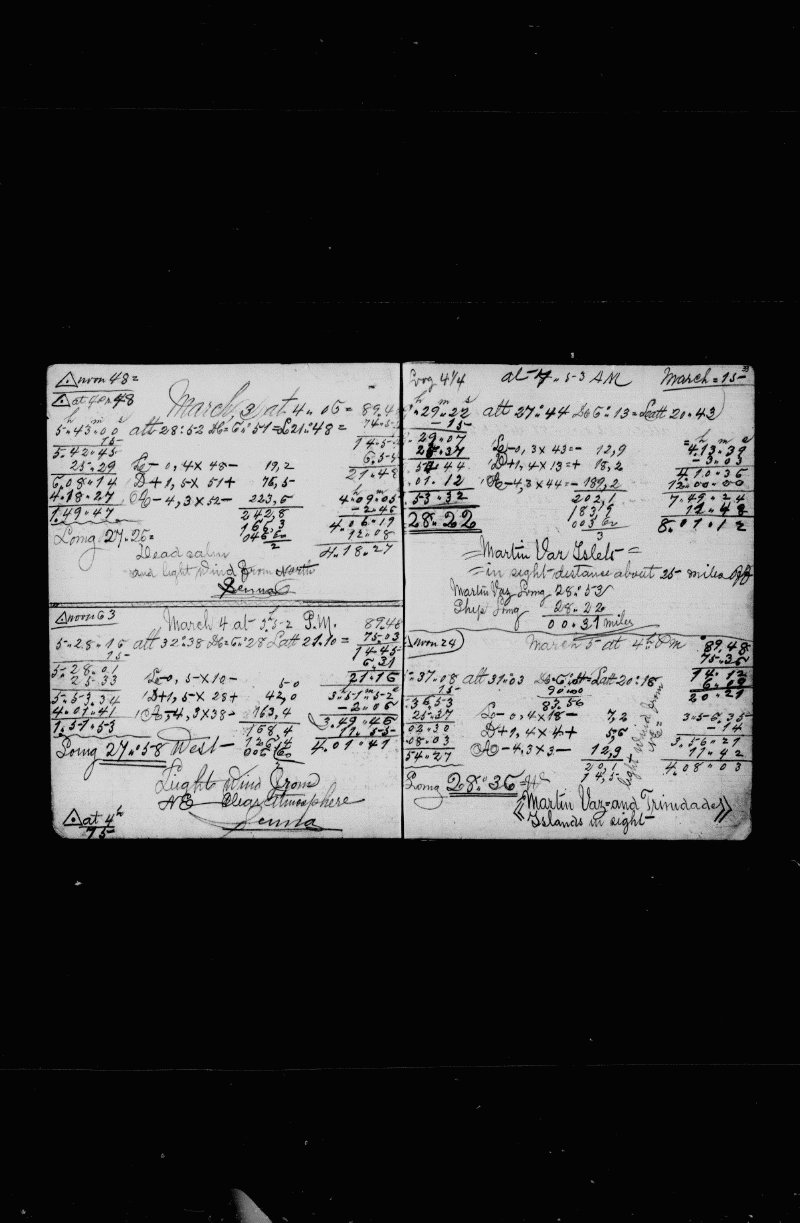 △ noon 48=
△ at 4h 48
March, 3, at 4.. 06 = 89.48
5..43..00 alt 28:52 D6= 6:51=L 21:48 =
15
5..42..45
25..29 L- 0,4 x 48- 19,2
6..08..14 D+1,5 x 51+ 76,5
4..18..27 A- 4,3 x 52- 223,6 4..09..05
1.49..47 242,8 -2..46
166,3 4..06..19
Long 27.26= 12..08
Dead calm 4..18..27
and light wind from North
Senna
△ noon 63
March 4 at 3:52 P.M. 89.48
5..28..16 alt 32:38 D6=6:28 Latt 21.10 = 75.03
15- 14.45
5..28..01 6.31
25..33 L- 0,5 x 10- 5-0 21.16
5..53..34 D+1,5 x 28+ 42,0 3..51..52
4..01..41 A- 4,3 x 38- 163,4 -2..06
1..51..53 168,4 3..49..46
126,4 11..55
Long 27:58 West- 4..01..41
Light Wind from
NE Clear Atmosphere
Senna
△ at 4h
75
Log 4¼ at 7..53 AM March = 15-
29..22 alt 27:44 D6 6:13 = Latt 20.43
-15
29..07
25..37 L- 0,3 x 43=- 12,9 4.13..39
54..44 D+1,4 x 13=+ 18,2 -3..03
01..12 A- 4,3 x 44=- 189,2 4.10..36
53..32 202,1 12..00..00
28.22 183,9 7..49..24
003 11..48
3 8..01..12
= Martin Vaz Islets =
= in sight distance about 35 miles
Martin Vaz Long 28:53
Ship Long 28.22
00:31 miles
△ noon 24
March 5 at 4h PM 89.48
37..08 alt 31:03 Latt 20:15 75.36
15- 90.00 14.12
36..53 83.56 6.09
25..37 L- 0,4 x 18- 7,2 20.21
02..30 D+1,4 x 4+ 5,6 3..56..35
08..03 A- 4,3 x 3- 12,9 -14
54..27 20,1 3..56..21
14,5 11..42
Long 28:36 4..08..03
light wind from
NE=
《Martin Vaz and Trinidade》
Islands in sight